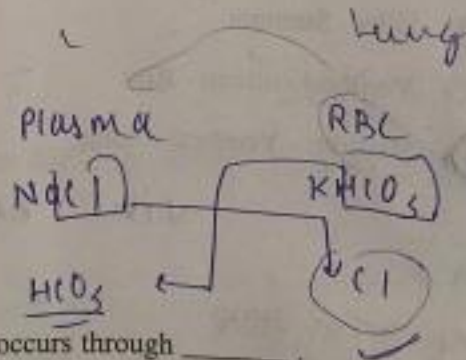 Lung
Plasma RBC
NaCl KHCO3
HCO3 Cl
occurs through